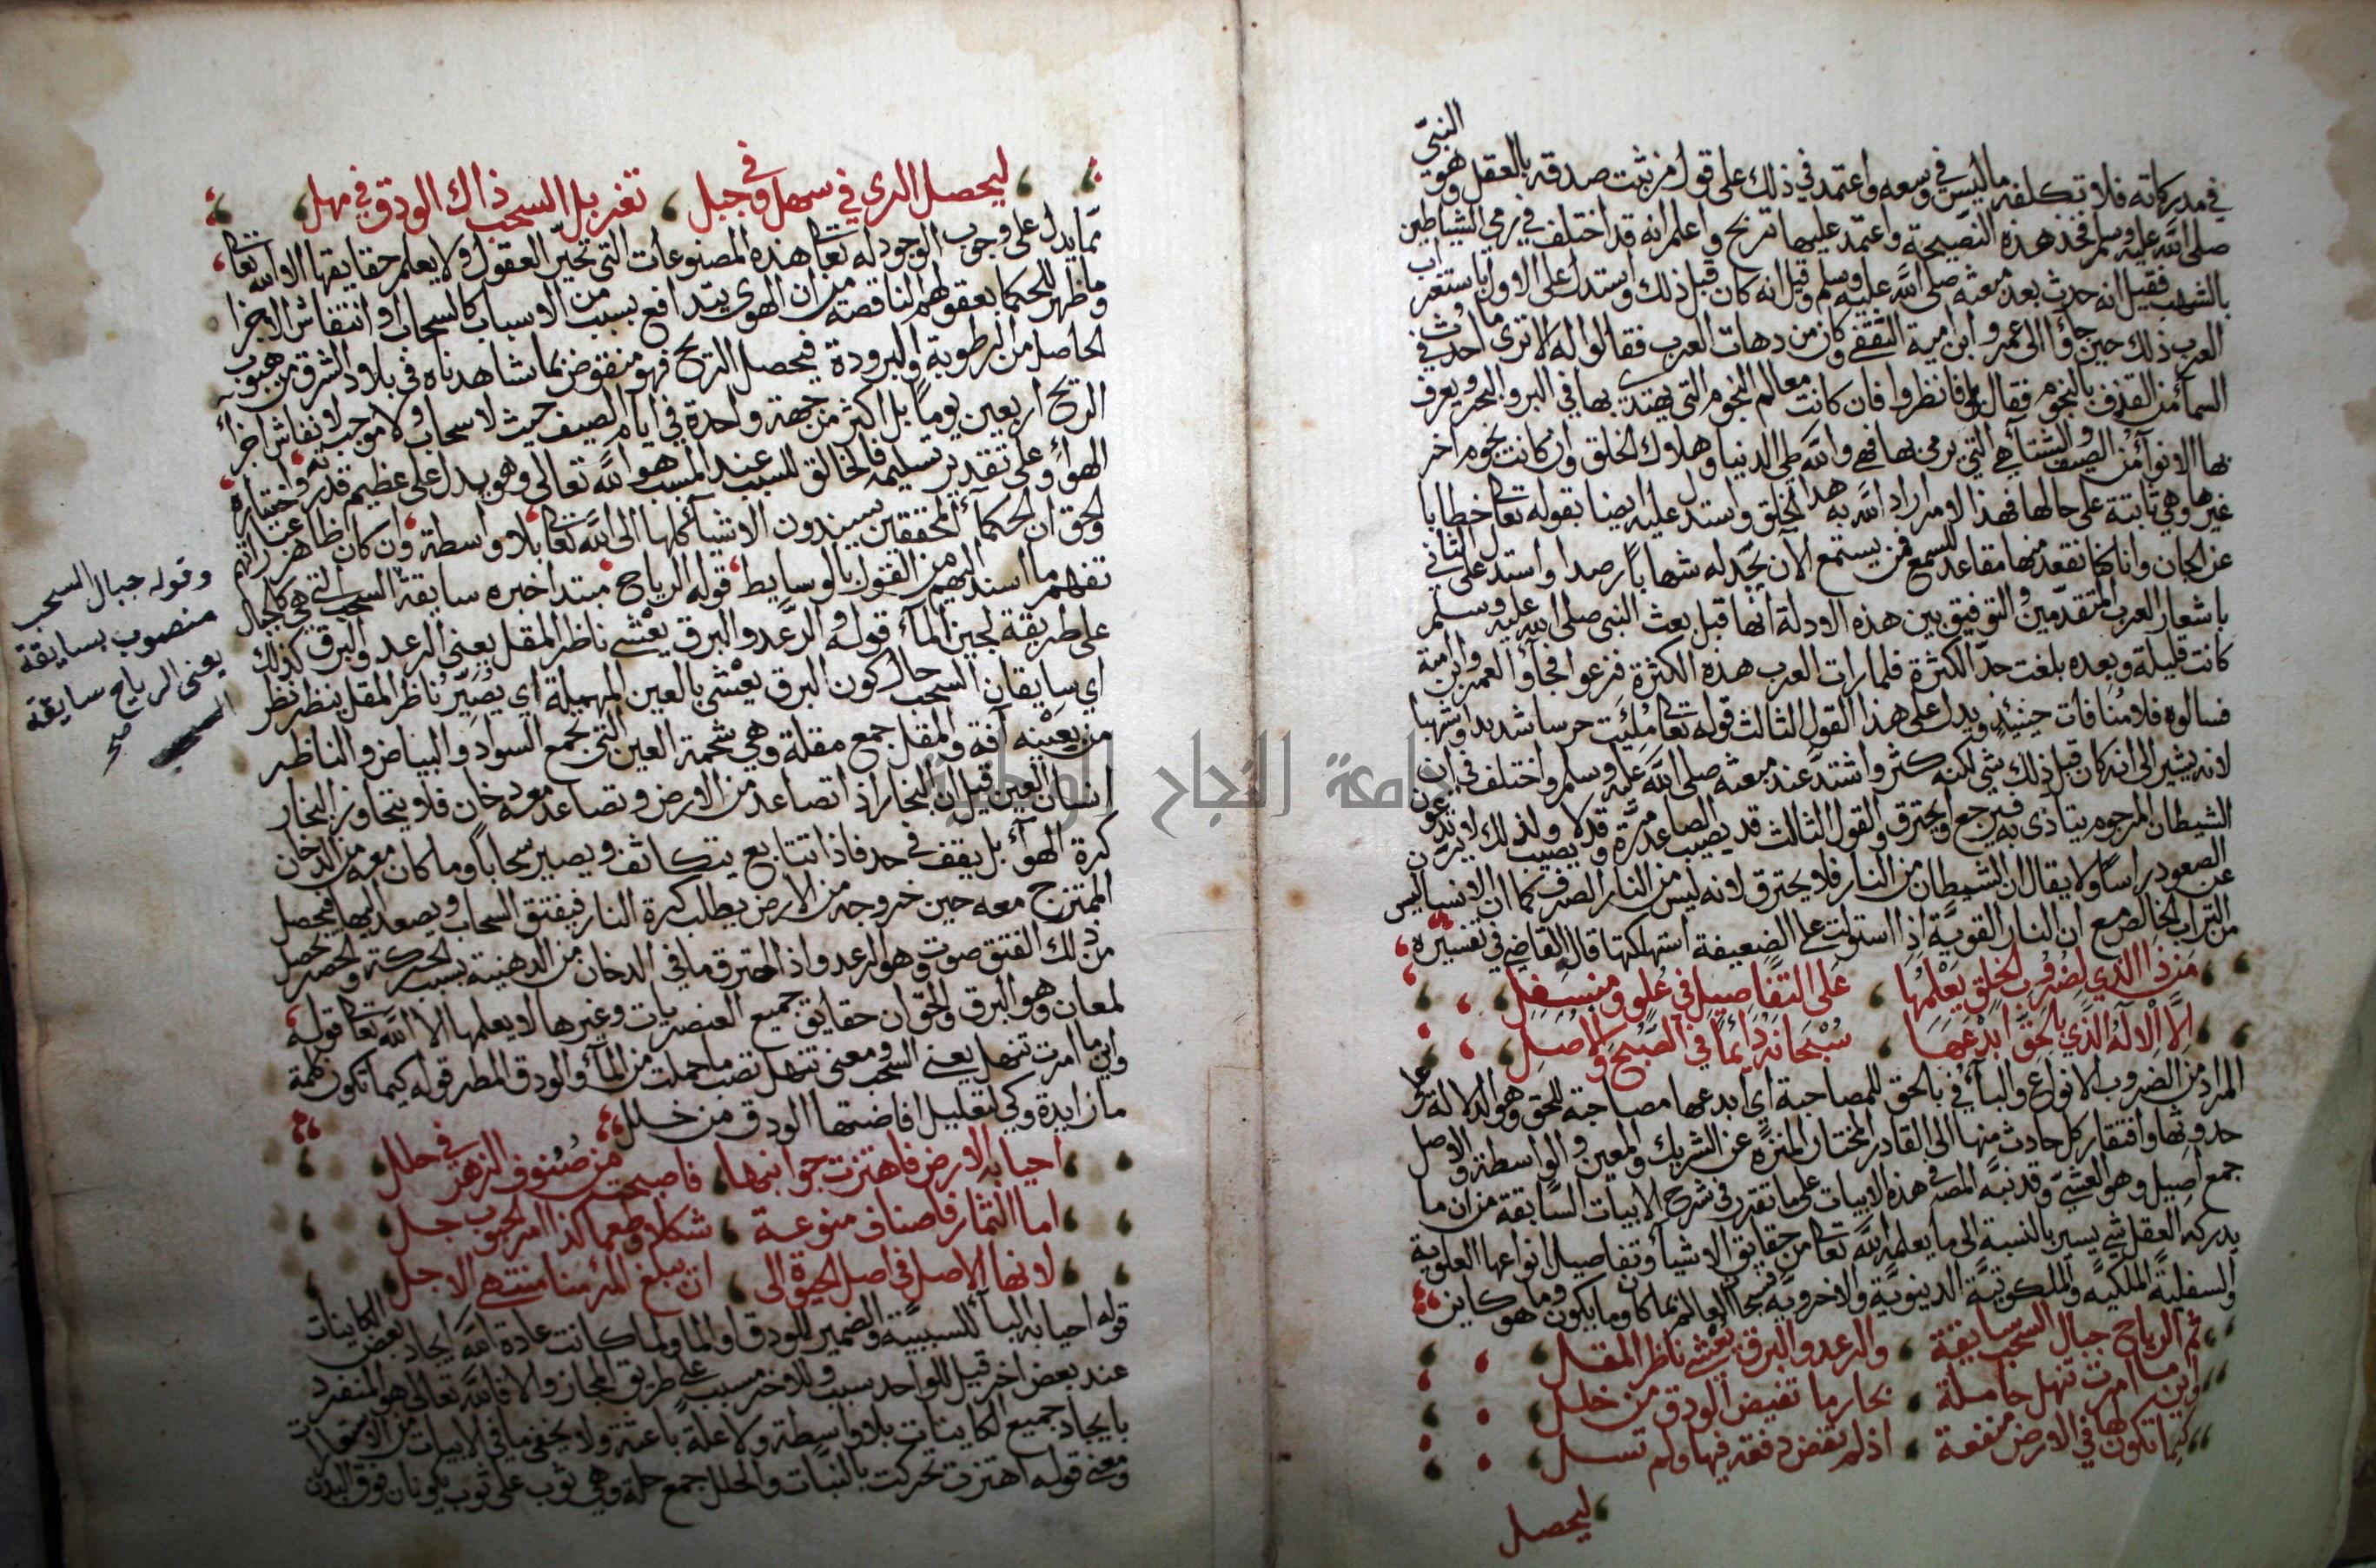 النبي
في مدركاته فلا تكلفه ما ليس في وسعه واعتمد في ذلك على قول من ثبت صدقه بالعقل وهو
صلى الله عليه وسلم فخذ هذه النصيحة واعتمد عليها تربح واعلم انه قد اختلف في رمي الشياطين
بالشهب فقيل انه حدث بعد مبعثه صلى الله عليه وسلم وقيل انه كان قبل ذلك واستدل على الاول باستغراب
العرب ذلك حين جاؤا الى عمرو ابن امية الثقفي وكان من دهات العرب فقالوا له الا ترى ما حدث في
السماء من القذف بالنجوم فقال بلى فانظروا فان كانت معالم النجوم التي يهتدى بها في البر والبحر ويعرف
بها الانواء من الصيف والشتاء هي التي يرمى بها فهي والله طي الدنيا وهلاك الخلق وان كانت نجوم اخر
غيرها وهي ثابتة على حالها فهذا الامر اراد الله به هذا الخلق واستدل عليه ايضا بقوله تعالى خطابا
عن الجان وانا كنا نقعد منها مقاعد للسمع فمن يستمع الآن يجد له شهابا رصدا واستدل على الثاني
باشعار العرب المتقدمين والتوفيق بين هذه الادلة انها قبل بعث النبي صلى الله عليه وسلم
كانت قليلة وبعده بلغت حد الكثرة فلما رات العرب هذه الكثرة فزعوا فجاؤا لعمرو ابن امية
فسالوه فلا منافات حينئذ ويدل على هذا القول الثالث قوله تعالى ملئت حرسا شديدا وشهبا
لانه يشير الى انه كان قبل ذلك شي لكنه كثر واشتد عند مبعثه صلى الله عليه وسلم واختلف في ان
الشيطان المرجوم يتاذى به فيرجع او يحترق والقول الثالث قد يصيب الصاعد مرة وقد لا يصيب ولذلك لا يرتدعون
عن الصعود راسا ولا يقال ان الشيطان من النار فلا يحترق لانه ليس من النار الصرف كما ان الانسان ليس
من التراب الخالص مع ان النار القوية اذا استولت على الضعيفة استهلكتها قال القاضي في تفسيره
من ذا الذي لضروب الخلق يعلمها على التفاصيل في علو ومنسفل
الا الاله الذي بالحق ابدعها سبحانه دائما في الصبح والاصل
المراد من الضروب الانواع والباء في بالحق للمصاحبة اي ابدعها مصاحبة للحق وهو الدلالة على
حدوثها وافتقار كل حادث منها الى القادر المختار المنزه عن الشريك والمعين والواسطة والاصل
جمع اصيل وهو العشي وقد نبه المص في هذه الابيات على ما تقرر في شرح الابيات السابقة من ان ما
يدركه العقل شي يسير بالنسبة الى ما يعلمه الله تعالى من حقايق الاشياء وتفاصيل انواعها العلوية
والسفلية الملكية والملكوتية الدنيوية والاخروية فسبحان العالم بما كان وما يكون وما هو كاين
ثم الرياح جبال السحب سايقة والرعد والبرق يعشي ناظر المقل
واين ما امرت تنهل حاملة بحار ما تفيض الودق من خلل
كيما تكون لها في الارض منفعة اذ لم تفض دفقة فيها ولم تسل
ليحصل
ليحصل الري في سهل وفي جبل تغربل السحب ذاك الودق في مهل
مما يدل على وجوب الوجود له تعالى هذه المصنوعات التي تحير العقول ولا يعلم حقايقها الا الله تعالى
وما ظهر للحكما بعقولهم الناقصة من ان الهوى يتدافع بسبب من الاسباب كالسحاب او انتفاش الاجزا
الحاصل من الرطوبة والبرودة فيحصل الريح فهو منقوض بما شاهدناه في بلاد الشرق من هبوب
الريح اربعين يوما بل اكثر من جهة واحدة في ايام الصيف حيث لا سحاب ولا موجب لانفاش اجزاء
الهواء وعلى تقدير تسليمه فالخالق للسبب عند المسبب هو الله تعالى وهو يدل على عظيم قدرته واختياره
والحق ان الحكماء المحققين يسيندون الاشياء كلها الى الله تعالى بلا واسطة وان كان ظاهر عباراتهم
تفهم ما اسند اليهم من القول بالوسايط قوله الرياح مبتدا خبره سايقة السحب التي هي كالجبال
على طريقة لجين الماء قوله والرعد والبرق يعشي ناظر المقل يعني الرعد والبرق كذلك
اي سايقان السحب حال كون البرق يعشي بالعين المهملة اي يصير ناظر المقل ينظر نظر
من بعينه آفة والمقل جمع مقلة وهي شحمة العين التي تجمع السواد والبياض والناظر
انسان العين قيل ان البخار اذا تصاعد من الارض وتصاعد معه دخان فلا يتجاوز البخار
كرة الهواء بل يقف في حد فاذا تتابع يتكاثف ويصير سحابا وما كان معه من الدخان
الممتزج معه حين خروجه من الارض يطلب كرة النار فيفتق السحاب ويصعد اليها فيحصل
من ذلك الفتق صوت وهو الرعد واذا احترق ما في الدخان من الدهنية بسبب الحركة والحصر حصل
لمعان وهو البرق والحق ان حقايق جميع العنصريات وغيرها لا يعلمها الا الله تعالى قوله
واين ما امرت تنهل يعني السحب ومعنى تنهل تصب ما حملت من الماء والودق المطر قوله كيما تكون كلمة
ما زايدة وكي لتعليل افاضتها الودق من خلل
احيا به الارض فاهتزت جوانبها فاصبحت من صنوف الزهر في حلل
اما الثمار فاصناف منوعة شكلا وطعما كذا امر الحبوب جل
لانها الاصل في اصل الحيوة الى ان يبلغ المرء منا منتهى الاجل
قوله احيا به الباء للسببية والضمير للودق او الما ولما كانت عادة الله ايجاد بعض الكاينات
عند بعض اخر قيل للواحد سبب وللاخر مسبب على طريق المجاز والا فالله تعالى هو المنفرد
بايجاد جميع الكاينات بلا واسطة ولا علة باعثة ولا يخفى ما في الابيات من الاستعارات
ومعنى قوله اهتزت تحركت بالنبات والحلل جمع حلة وهي ثوب على ثوب يكونان فوق البدن
وقوله جبال السحب
منصوب بسايقة
يعني الرياح سايقة
السحب
صح
جامعة النجاح الوطنية